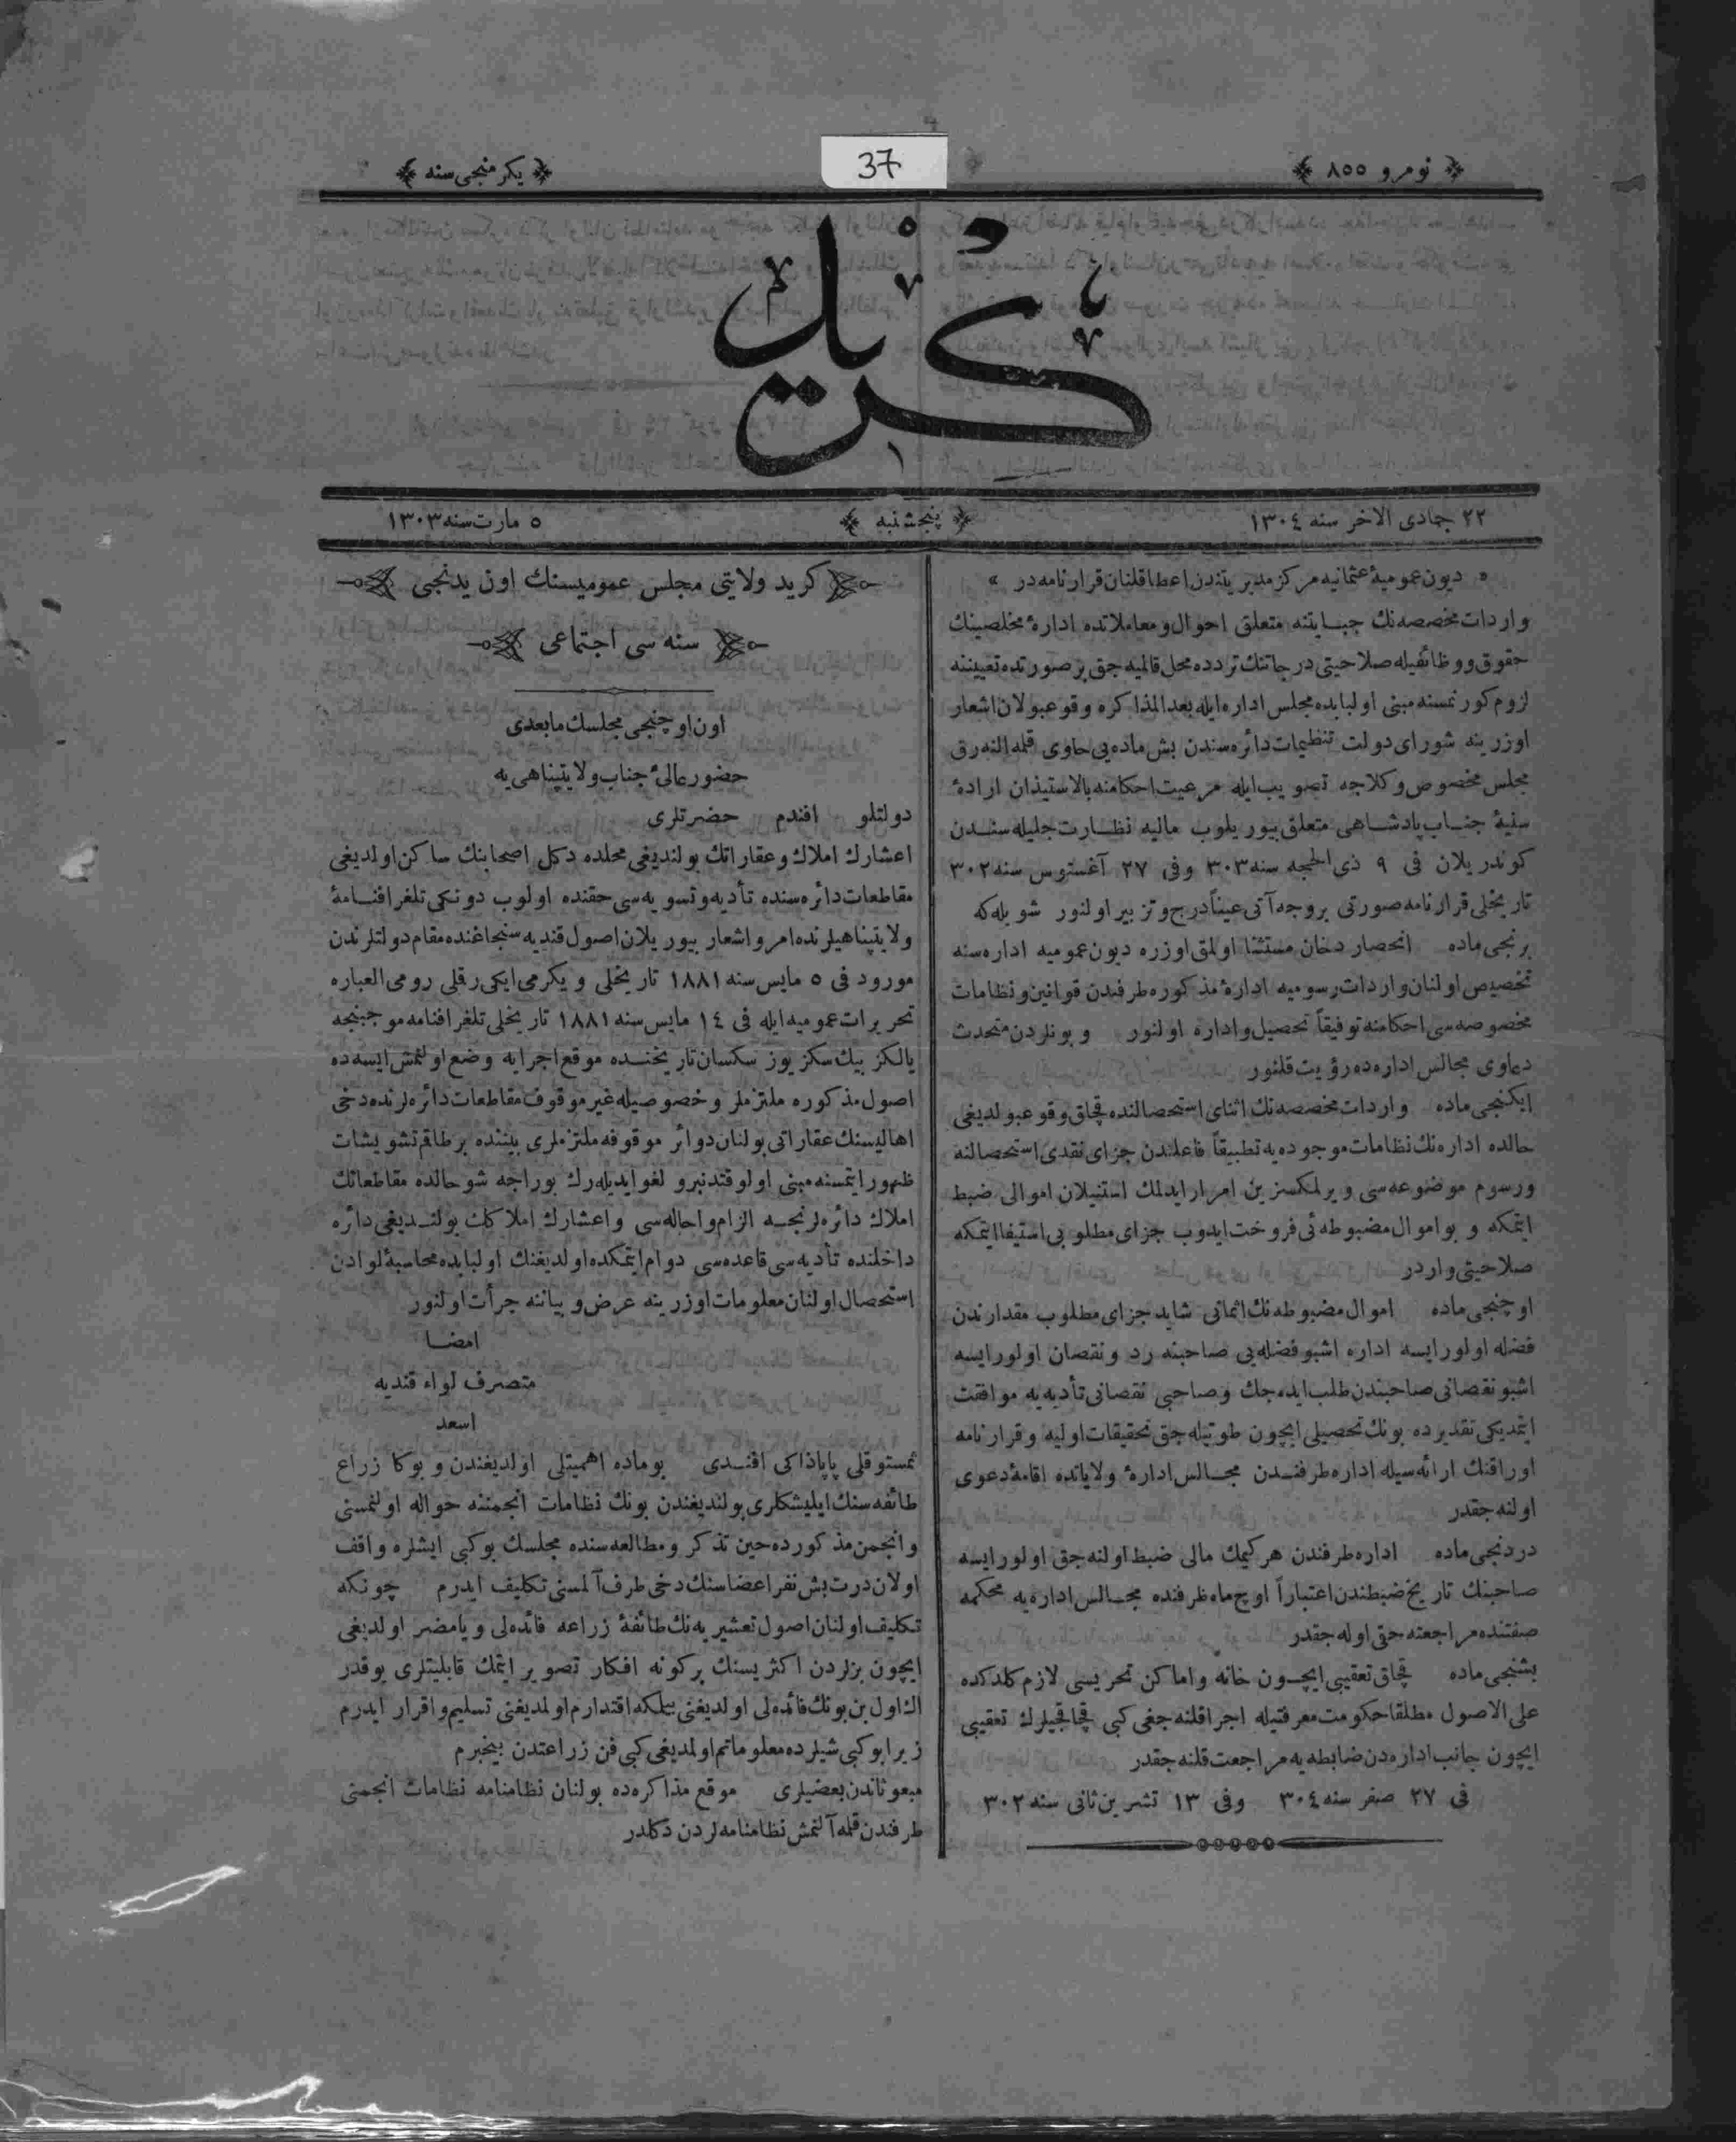 نومرو ٨٥٥
37
يكرمنجى سنه
كريد
٢٢ جمادى الاخر سنه ١٣٠٤
پنجشنبه
٥ مارت سنه ١٣٠٣
« ديون عموميۀ عثمانيه مركز مديريتندن اعطا قلنان قرارنامه در »
واردات مخصصه نك جبايتنه متعلق احوال و معاملاتده ادارۀ مخلصينك
حقوق و وظائفيله صلاحيتى درجاتنك تردده محل قالميه جق بر صورتده تعييننه
لزوم كورنمسنه مبنى اولبابده مجلس اداره ايله بعد المذاكره وقوعبولان اشعار
اوزرينه شوراى دولت تنظيمات دائره سندن بش ماده يى حاوى قلمه النه رق
مجلس مخصوص وكلاجه تصويب ايله مرعيت احكامنه بالاستيذان ارادۀ
سنيۀ جناب پادشاهى متعلق بيوريلوب ماليه نظارت جليله سندن
كوندريلان فى ٩ ذى الحجه سنه ٣٠٣ وفى ٢٧ آغستوس سنه ٣٠٢
تاريخلى قرارنامه صورتى بروجه آتى عيناً درج و تزبير اولنور شويله كه
برنجى ماده انحصار دخان مستثنا اولمق اوزره ديون عموميه اداره سنه
تخصيص اولنان واردات رسوميه ادارۀ مذكوره طرفندن قوانين و نظامات
مخصوصه سى احكامنه توفيقاً تحصيل و اداره اولنور و بونلردن متحدث
دعاوى مجالس اداره ده رؤيت قلنور
ايكنجى ماده واردات مخصصه نك اثناى استحصالنده قچاق وقوعبولديغى
حالده اداره نك نظامات موجوده يه تطبيقاً فاعلندن جزاى نقدى استحصالنه
ورسوم موضوعه سى ويرلمكسزين امرار ايدلمك استنيلان اموالى ضبط
ايتمكه و بو اموال مضبوطه ئى فروخت ايدوب جزاى مطلوبى استيفا ايتمكه
صلاحيتى واردر
اوچنجى ماده اموال مضبوطه نك اثمانى شايد جزاى مطلوب مقدارندن
فضله اولور ايسه اداره اشبو فضله يى صاحبنه رد و نقصان اولور ايسه
اشبو نقصانى صاحبندن طلب ايده جك و صاحبى نقصانى تأديه يه موافقت
ايتمديكى تقديرده بونك تحصيلى ايچون طوتيله جق تحقيقات اوليه و قرارنامه
اوراقنك ارائه سيله اداره طرفندن مجالس ادارۀ ولاياتده اقامۀ دعوى
اولنه جقدر
دردنجى ماده اداره طرفندن هر كيمك مالى ضبط اولنه جق اولور ايسه
صاحبنك تاريخ ضبطندن اعتباراً اوچ ماه ظرفنده مجالس اداره يه محكمه
صفتنده مراجعته حقى اوله جقدر
بشنجى ماده قچاق تعقيبى ايچون خانه واماكن تحريسى لازم كلدكده
على الاصول مطلقا حكومت معرفتيله اجرا قلنه جغى كبى قچاقجيلرك تعقيبى
ايچون جانب اداره دن ضابطه يه مراجعت قلنه جقدر
فى ٢٧ صفر سنه ٣٠٤ وفى ١٣ تشرين ثانى سنه ٣٠٢
كريد ولايتى مجلس عموميسنك اون يدنجى
سنه سى اجتماعى
اون اوچنجى مجلسك مابعدى
حضور عالئ جناب ولايتپناهى يه
دولتلو افندم حضرتلرى
اعشارك املاك و عقاراتك بولنديغى محلده دكل اصحابنك ساكن اولديغى
مقاطعات دائره سنده تأديه و تسويه سى حقنده اولوب دونكى تلغرافنامۀ
ولايتپناهيلرنده امر و اشعار بيوريلان اصول قنديه سنجاغنده مقام دولتلرندن
مورود فى ٥ مايس سنه ١٨٨١ تاريخلى و يكرمى ايكى رقملى رومى العباره
تحريرات عموميه ايله فى ١٤ مايس سنه ١٨٨١ تاريخلى تلغرافنامه موجبنجه
يالكز بيك سكز يوز سكسان تاريخنده موقع اجرايه وضع اولنمش ايسه ده
اصول مذكوره ملتزملر و خصوصيله غير موقوف مقاطعات دائره لرنده دخى
اهاليسنك عقاراتى بولنان دوائر موقوفه ملتزملرى بيننده بر طاقم تشويشات
ظهور ايتمسنه مبنى اولوقتدنبرو لغو ايديله رك بوراجه شو حالده مقاطعاتك
املاك دائره لرنجه الزام و احاله سى و اعشارك املاكك بولنديغى دائره
داخلنده تأديه سى قاعده سى دوام ايتمكده اولديغنك اولبابده محاسبۀ لوادن
استحصال اولنان معلومات اوزرينه عرض و بياننه جرأت اولنور
امضا
متصرف لواء قنديه
اسعد
ثمستوقلى پاپاذاكى افندى بو ماده اهميتلى اولديغندن و بوكا زراع
طائفه سنك ايليشكلرى بولنديغندن بونك نظامات انجمننه حواله اولنمسنى
و انجمن مذكورده حين تذكر و مطالعه سنده مجلسك بوكبى ايشلره واقف
اولان درت بش نفر اعضاسنك دخى طرف آلمسنى تكليف ايدرم چونكه
تكليف اولنان اصول تعشيريه نك طائفۀ زراعه فائده لى و يا مضر اولديغى
ايچون بزلردن اكثريسنك بركونه افكار تصوير ايتمك قابليتلرى يوقدر
اك اول بن بونك فائده لى اولديغنى بيلمكه اقتدارم اولمديغنى تسليم و اقرار ايدرم
زيرا بوكبى شيلرده معلوماتم اولمديغى كبى فن زراعتدن بيخبرم
مبعوثاندن بعضيلرى موقع مذاكره ده بولنان نظامنامه نظامات انجمنى
طرفندن قلمه آلنمش نظامنامه لردن دكلدر